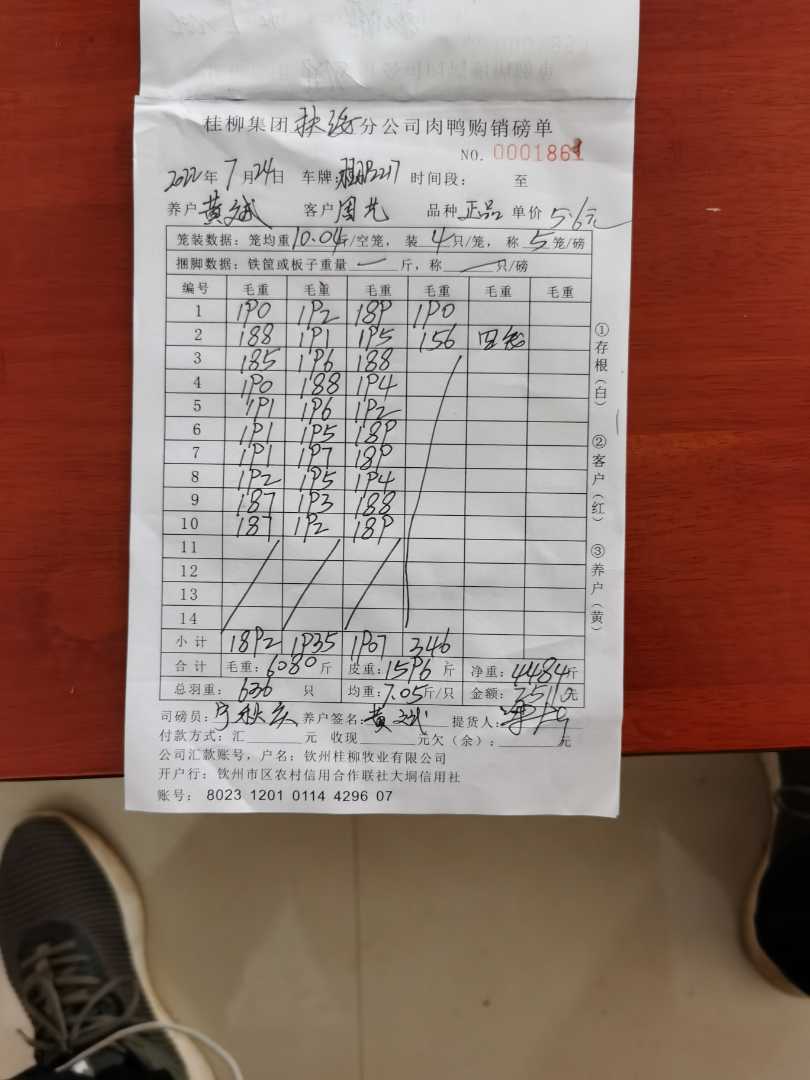 桂柳集团 扶绥 分公司肉鸭购销磅单
NO. 0001861
2022年 7月24日 车牌: 时间段： 至
养户 黄斌 客户 周光 品种 正品 单价 5.6元
笼装数据：笼均重10.04斤/空笼，装 4只/笼，称 5笼/磅
捆脚数据：铁筐或板子重量 一 斤，称 一 只/磅
编号 毛重 毛重 毛重 毛重 毛重 毛重
1 190 192 189 190
2 188 191 195 156 四笼
3 185 196 188
4 190 188 194
5 191 196 192
6 191 195 189
7 191 197 189
8 192 195 194
9 187 193 188
10 187 192 189
11
12
13
14
小计 1892 1935 1907 346
合计 毛重：6080斤 皮重：1596斤 净重：4484斤
总羽重：636只 均重：7.05斤/只 金额：元
司磅员： 养户签名：黄斌 提货人：
付款方式：汇 元 收现 元欠（余）： 元
公司汇款账号，户名：钦州桂柳牧业有限公司
开户行：钦州市区农村信用合作联社大垌信用社
账号： 8023 1201 0114 4296 07
①存根（白） ②客户（红） ③养户（黄）